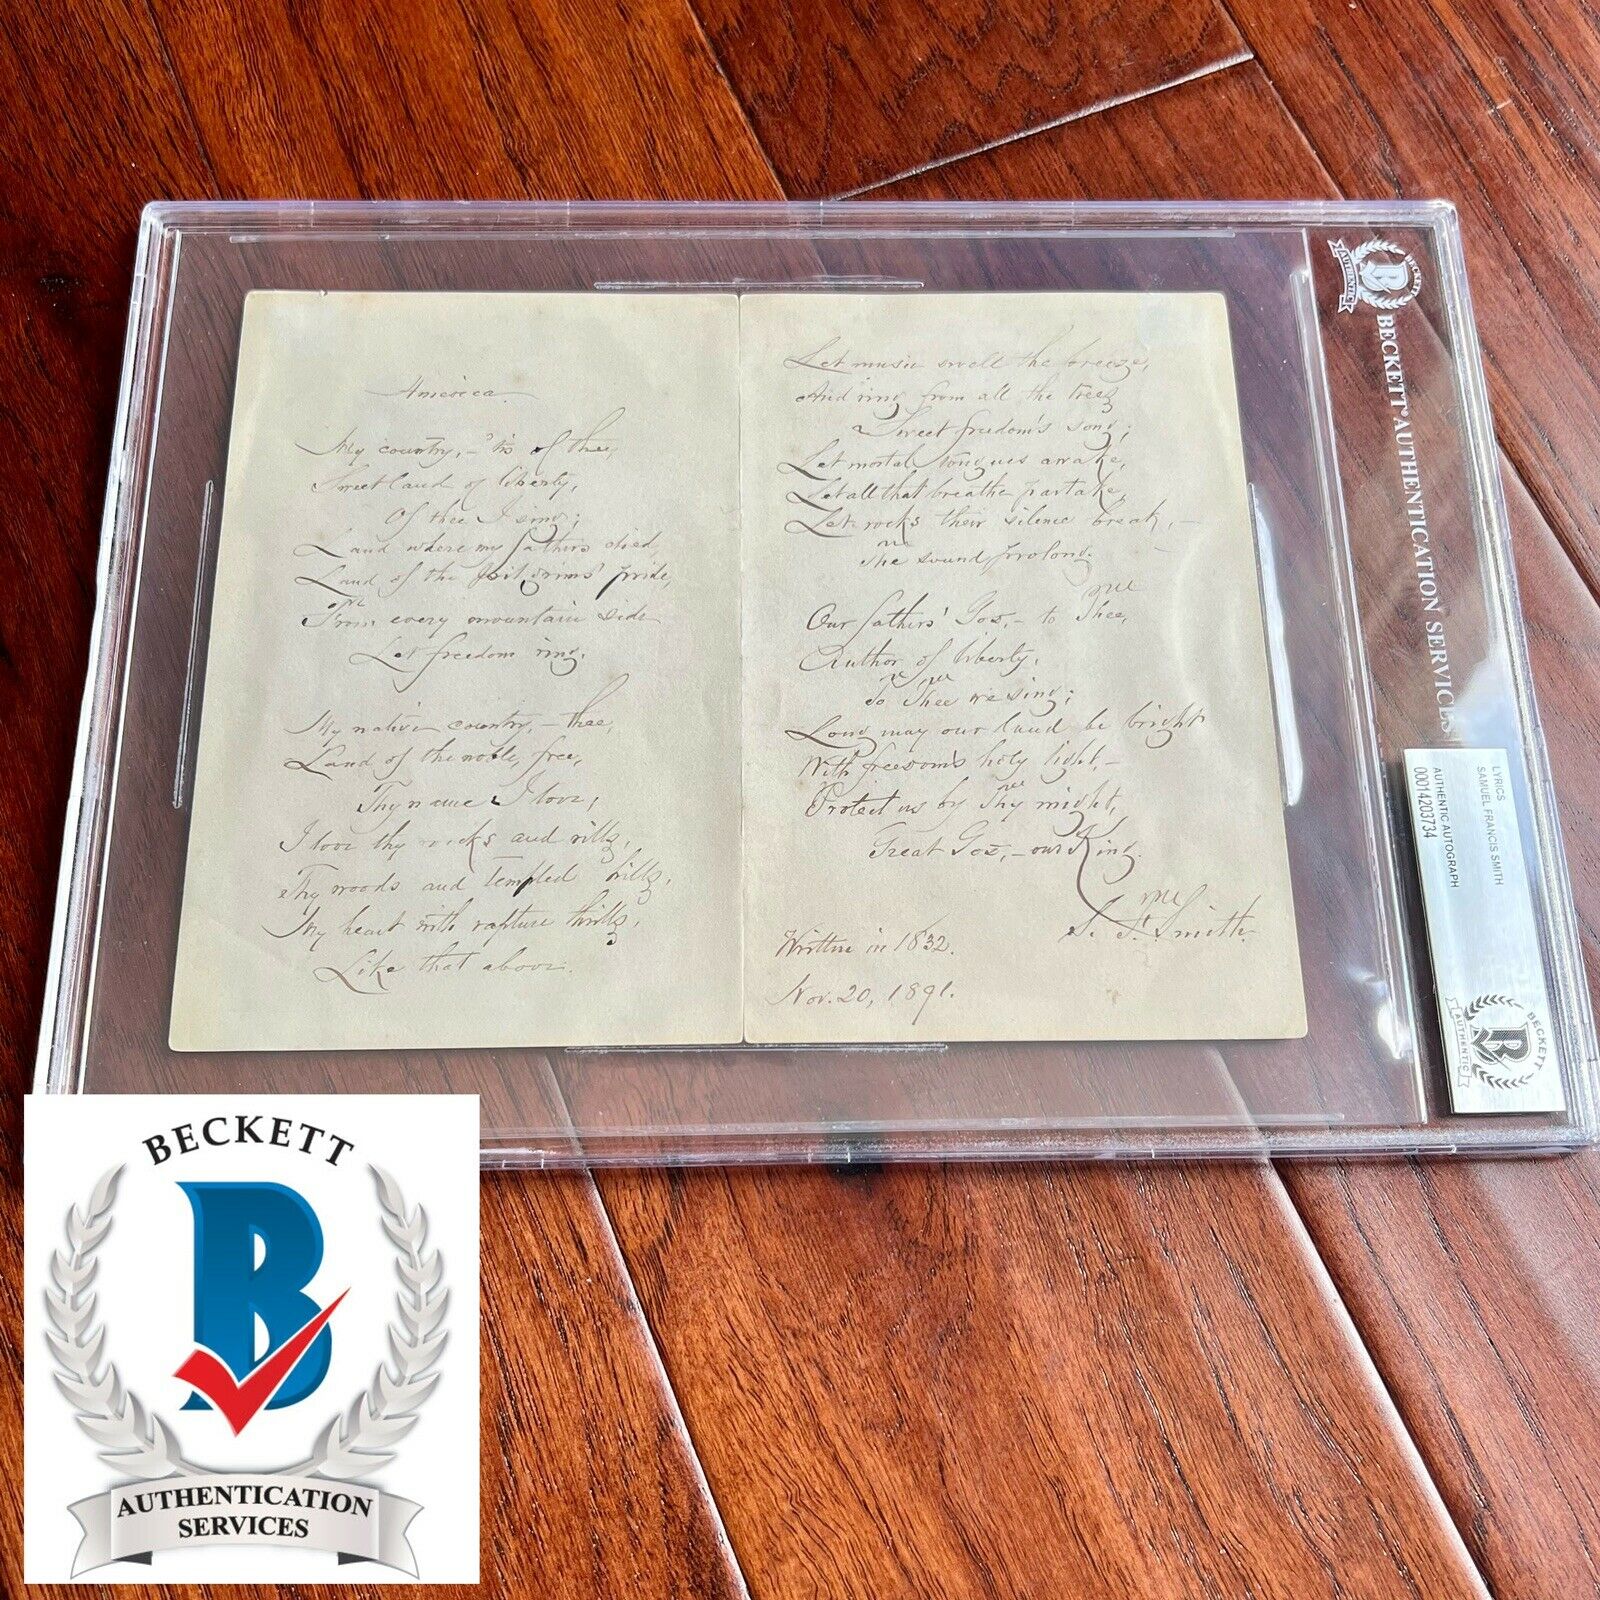 America.
My country, – 'tis of thee,
Sweet land of liberty,
Of thee I sing;
Land where my fathers died,
Land of the Pilgrims' pride,
From every mountain side
Let freedom ring.
My native country, – thee,
Land of the noble, free,
Thy name I love;
I love thy rocks and rills,
Thy woods and templed hills,
My heart with rapture thrills,
Like that above.
Let music swell the breeze,
And ring from all the trees
Sweet freedom's song;
Let mortal tongues awake,
Let all that breathe partake,
Let rocks their silence break, –
The sound prolong.
Our fathers' God, – to Thee,
Author of liberty,
To Thee we sing;
Long may our land be bright
With freedom's holy light, –
Protect us by Thy might,
Great God, – our King.
S. F. Smith.
Written in 1832.
Nov. 20, 1891.
BECKETT
AUTHENTIC
BECKETT AUTHENTICATION SERVICES
LYRICS
SAMUEL FRANCIS SMITH
AUTHENTIC AUTOGRAPH
00014203734
BECKETT
AUTHENTIC
BECKETT
B
AUTHENTICATION
SERVICES